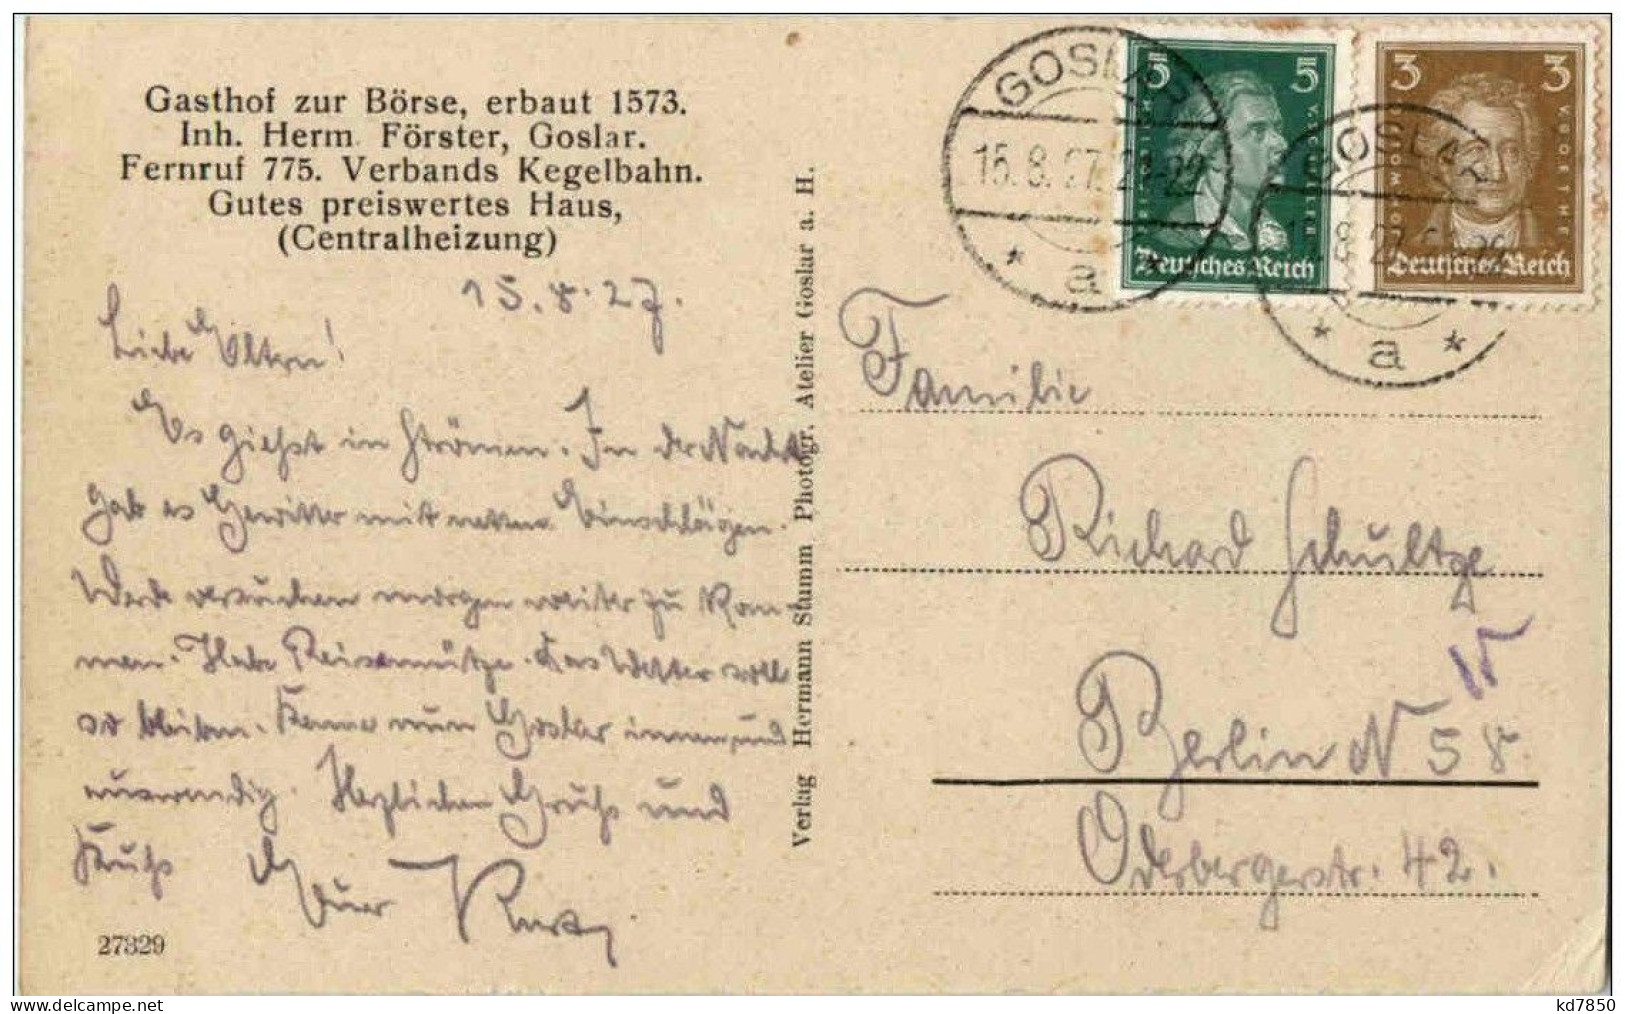 Gasthof zur Börse, erbaut 1573.
Inh. Herm. Förster, Goslar.
Fernruf 775. Verbands Kegelbahn.
Gutes preiswertes Haus,
(Centralheizung)
15.8.27.
Liebe Eltern!
Es gießt in Strömen. In der Nacht
gab es Gewitter mit netten Einschlägen.
Werde versuchen morgen weiter zu kom-
men. Habe Reisemütze. Das Wetter soll
so bleiben. Kenne nun Goslar innen und
auswendig. Herzlichen Gruß und
Kuß Euer
27829
Verlag Hermann Stumm Photogr. Atelier Goslar a. H.
GOSLAR
15.8.27.21-22
* a *
5 5
Deutsches Reich
GOSLAR
* a *
3 3
V. GOETHE
JOH. WOLFG.
Deutsches Reich
Familie
Richard Schultze
Berlin N 58.
Oderbergerstr. 42.
kd7850